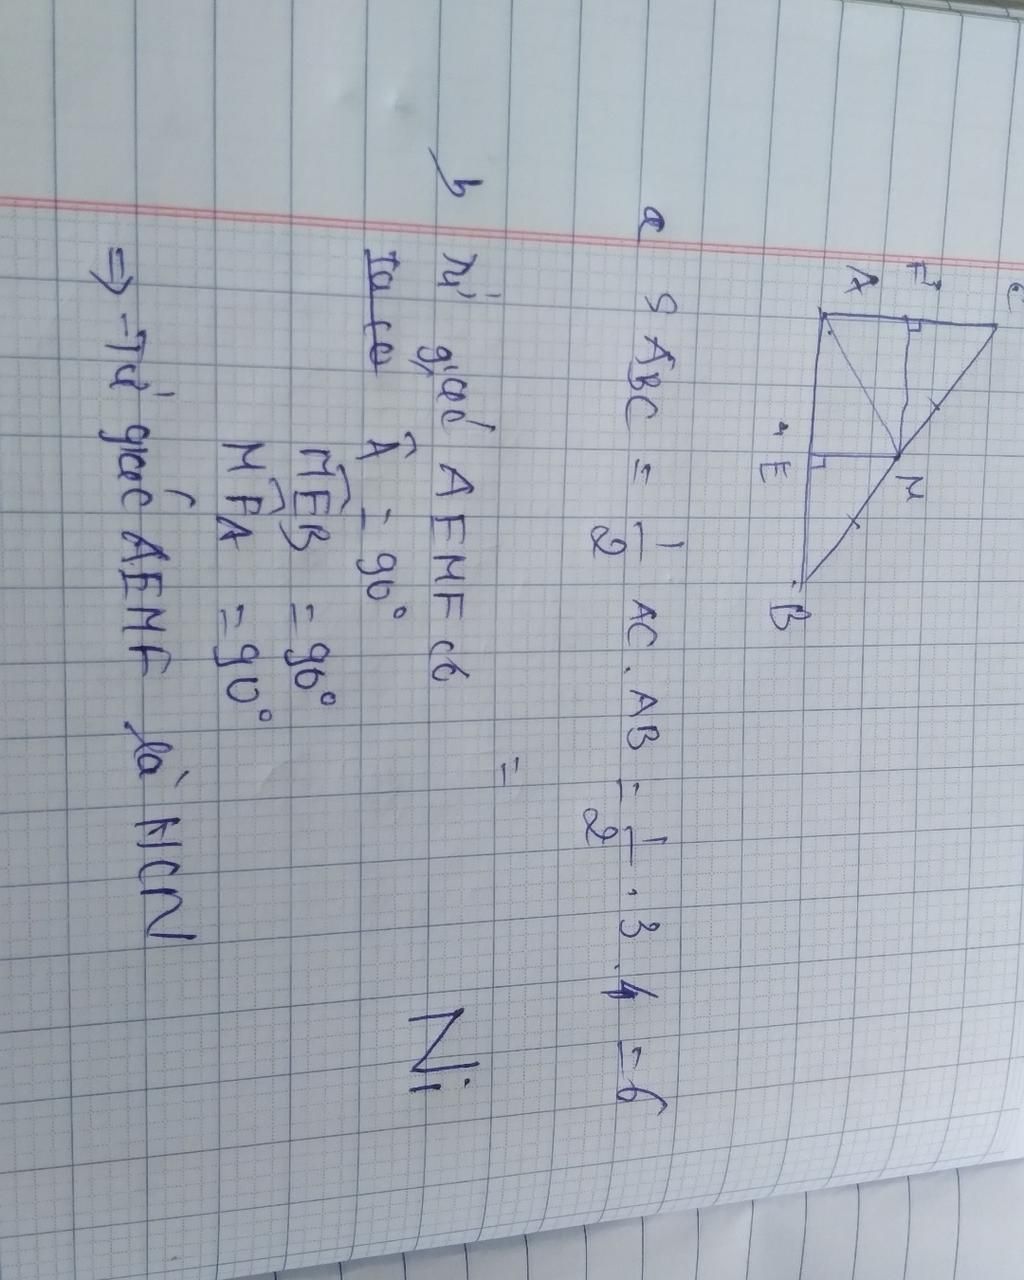 C
F
M
A
E
B
a S ABC = 1/2 AC . AB = 1/2 . 3 . 4 = 6
=
b Tứ giác AEMF có
Ta có Â = 90°
MEB = 90°
MFA = 90°
Ni
⇒ - Tứ giác AEMF là HCN